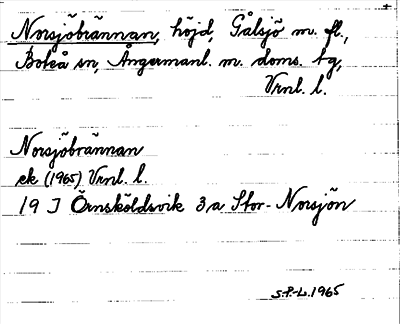 Norsjöbrännan, höjd, Gålsjö m. fl.,
Boteå sn, Ångermanl. m. doms. tg,
Vrnl. l.
Norsjöbrännan
ek (1965) Vrnl. l.
19 J Örnsköldsvik 3a Stor-Norsjön
S.P.-L. 1965